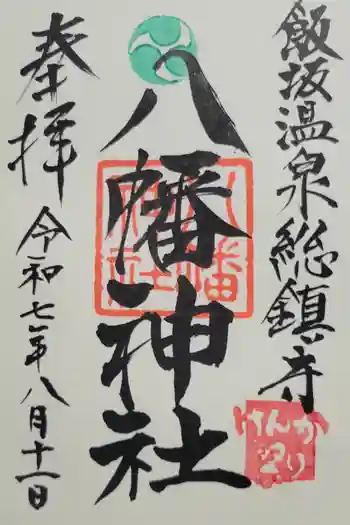 飯坂温泉総鎮守
八幡神社
八幡神社
けんか
祭り
奉拝
令和七年八月十一日